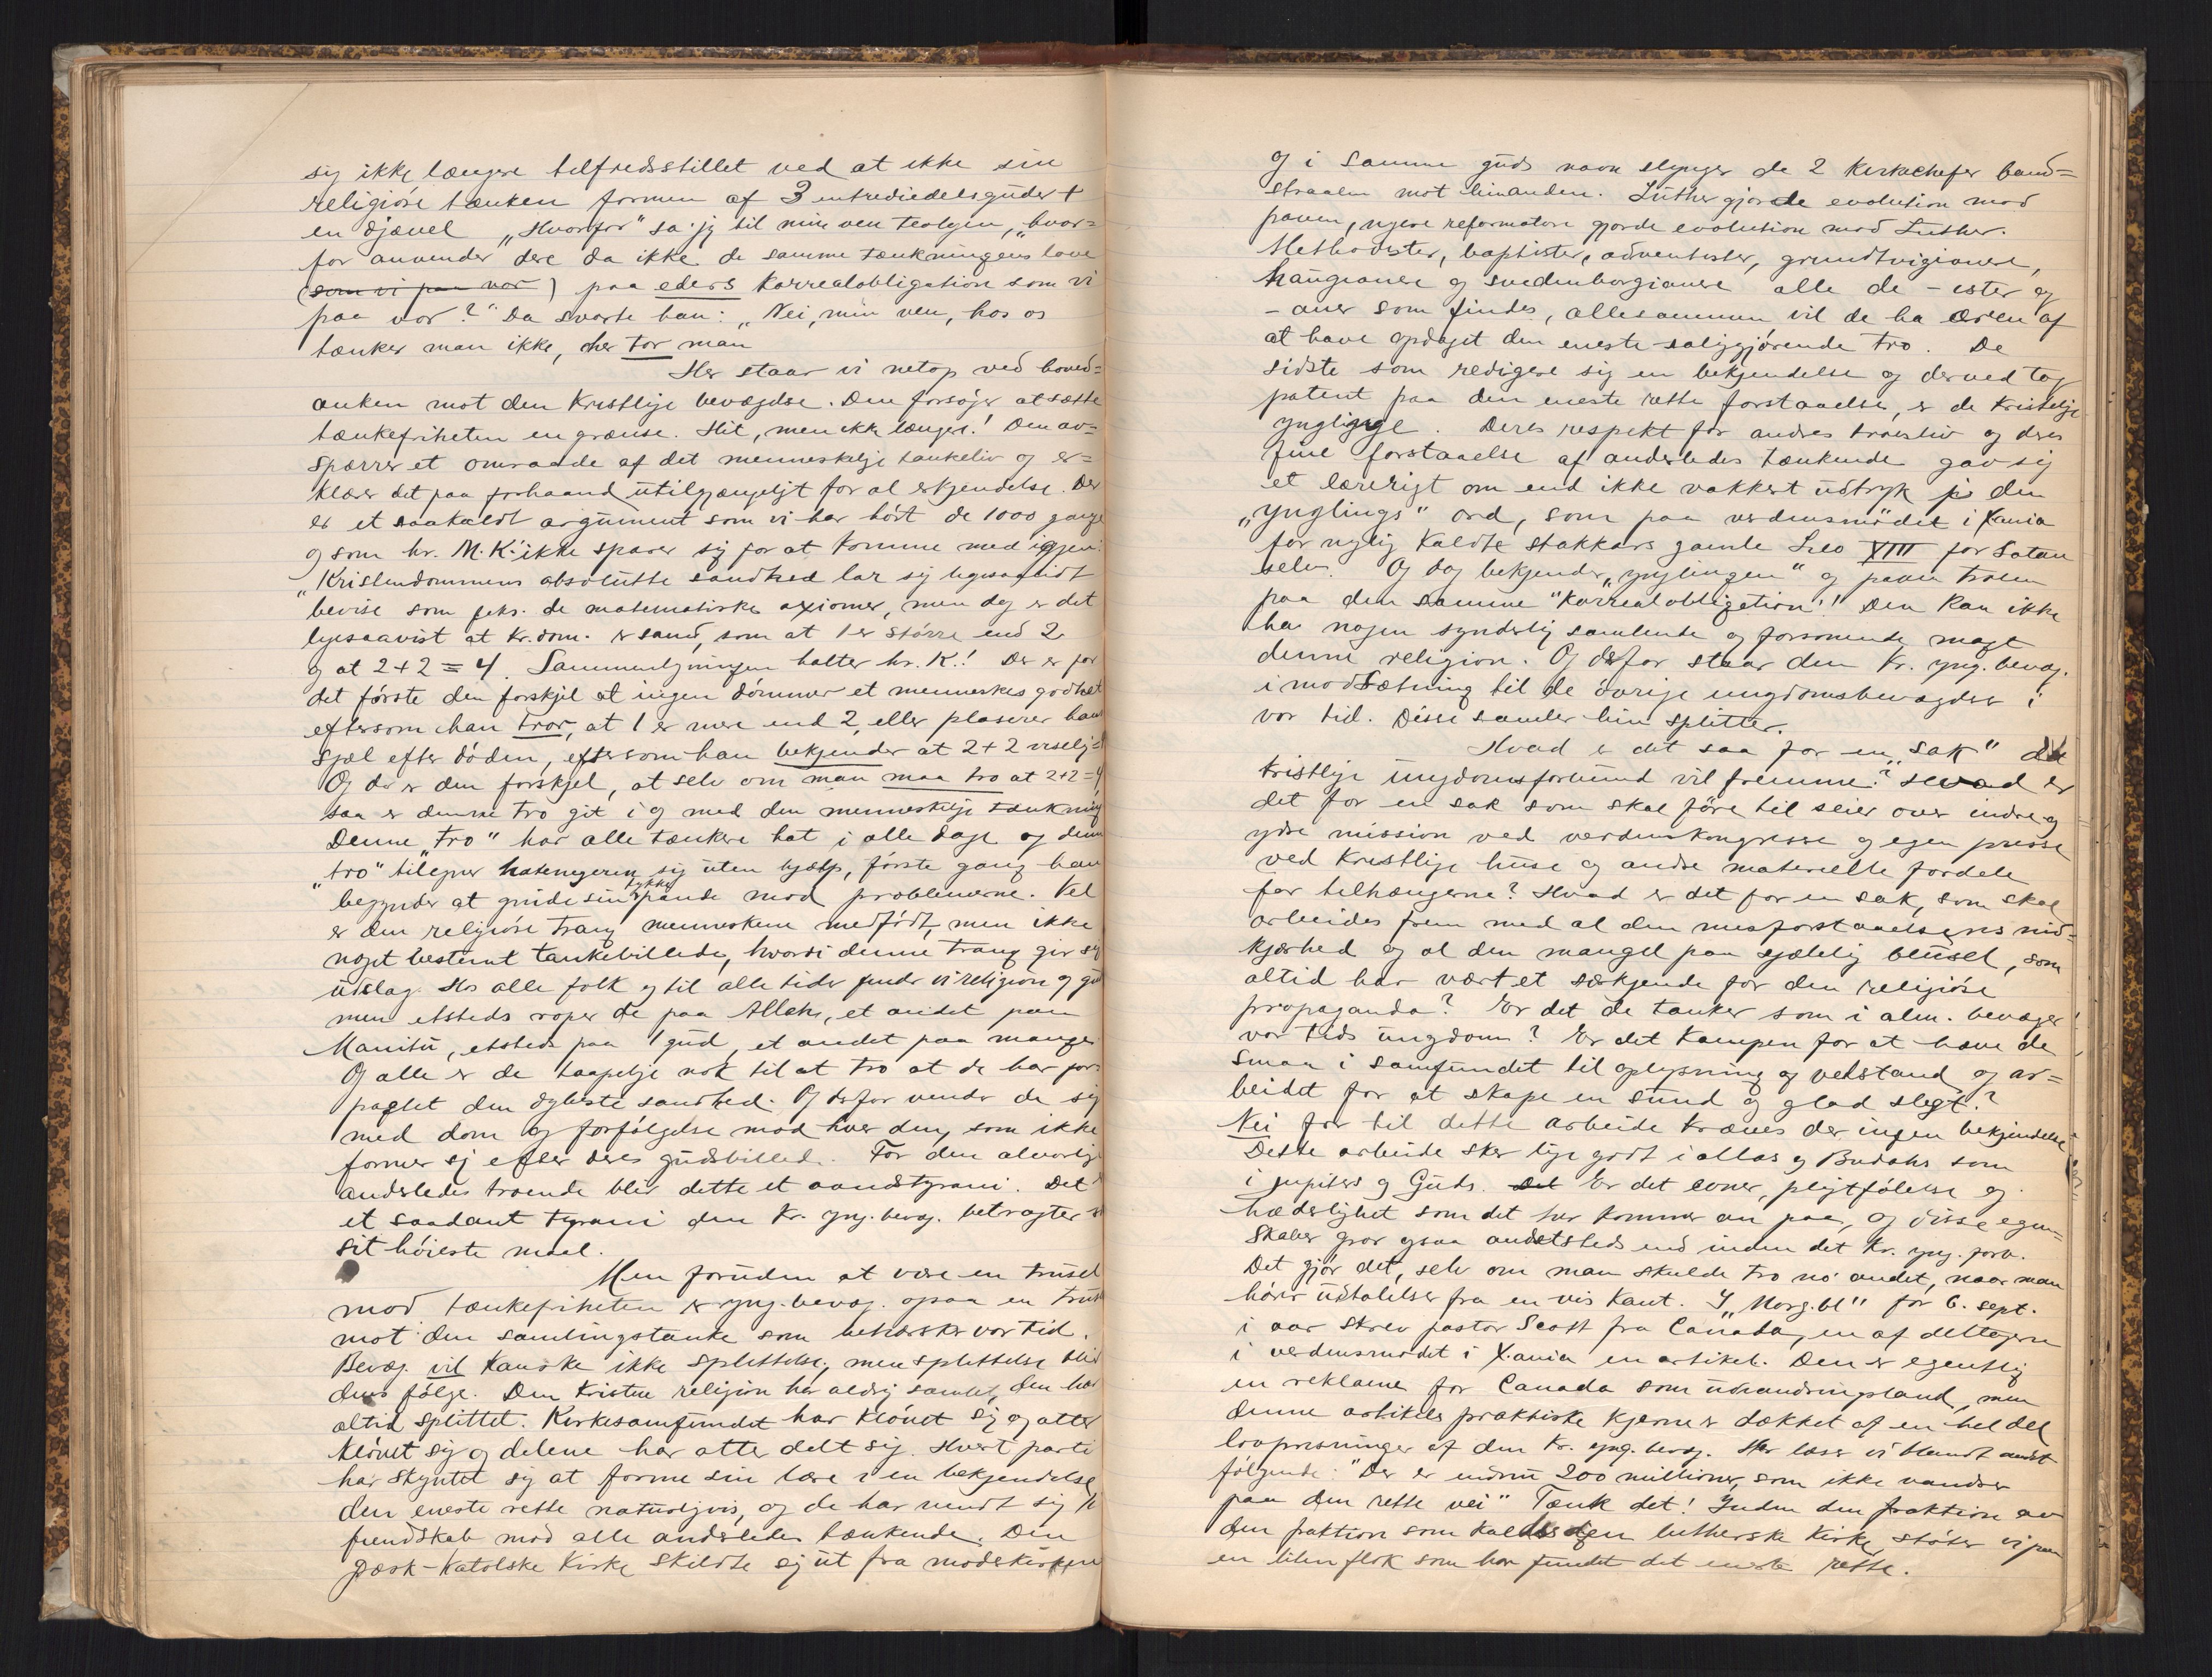 sig ikke længere tilfredsstillet ved at ikke sin
religiöse tanken formen af 3 entrediedelsguder +
en djævel „Hvorfor" sa jeg til min ven teologen, „hvor=
for anvender dere da ikke de samme tænkningens love
(som vi paa vor) paa eders Korrealobligation som vi
paa vor?" Da svarte han: „Nei, min ven, hos os
tænker man ikke, der tror man
Her staar vi netop ved hoved=
anken mot den Kristlige bevægelse. Den forsöger at sætte
tænkefriheten en grænse. Hit, men ikke længer! Den av=
spærrer et omraade af det menneskelige tankeliv og er=
klærer det paa forhaand utilgjængeligt for al erkjendelse. Der
er et saakaldt argument som vi har hört de 1000 gange
og som hr. M. K. ikke sparer sig for at komme med igjen:
„Kristendommens absolutte sandhed lar sig ligesaalidt
bevise som feks. de matematiske axiomer, men dog er det
ligesaavist at Kr.dom. er sand, som at 1 er större end 2
og at 2+2=4. Sammenligningen halter hr. K.! Der er for
det förste den forskjel at ingen dömmer et menneskes godhet
eftersom han tror, at 1 er mere end 2, eller plaserer hans
sjæl efter döden, eftersom han bekjender at 2+2
Og der er den forskjel, at selv om man maa tro at 2+2=4
saa er denne tro git i og med den menneskelige tænkning
Denne „tro" har alle tænkere hat i alle dage og denne
„tro" tilegner sig uten hjælp, förste gang han
begynder at gnide sin tykke pande mod problemerne. Vel
er den religiöse trang menneskene medfödt, men ikke
noget bestemt tankebillede, hvori denne trang gir sig
udslag. Hos alle folk og til alle tider finder vi religion og gud
men etsteds roper de paa Allah, et andet paa
Manitu, etsteds paa 1 gud, et andet paa mange
Og alle er de taapelige nok til at tro at de har for=
pagtet den dybeste sandhed. Og derfor vender de sig
med dom og forfölgelse mod hver den, som ikke
former sig efter deres gudsbillede. For den alvorlige
anderledes troende blir dette et aandstyrani. Det
et saadant tyrani den Kr. yng. bevæg. betragter s
sit höieste maal.
Men foruden at være en trusel
mod tænkefriheten er yng. bevæg. ogsaa en trus
mot den samlingstanke som behærsker vor tid.
Bevæg. vil kanske ikke splittelse, men splittelse blir
dens fölge. Den Kristne religion har aldrig samlet, den har
altid splittet. Kirkesamfundet har klövet sig og atter
klövet sig og delene har atter delt sig. Hvert parti
har skyntet sig at forme sin lære i en bekjendelse
den eneste rette naturligvis, og de har vendt sig i
fiendskab mod alle anderledes tænkende. Den
græsk-katolske Kirke skildte sig ut fra moderkirken
og i samme guds navn slynger de 2 Kirkechefer band=
straalen mot hinanden. Luther gjorde evolution mod
paven, nyere reformatore gjorde evolution mod Luther.
Methodister, baptister, adventister, grundtvigianere,
haugianere og svedenborgianere alle de – ister og
– aner som findes, allesammen vil de ha æren af
at have opdaget den eneste saliggjörende tro. De
sidste som redigere sig en bekjendelse og derved tog
patent paa den eneste rette forstaaelse, er de kristelige
ynglinge. Deres respekt for andres troesliv og deres
fine forstaaelse af anderledes tænkende gav sig
et lærerigt om end ikke vakkert udtryk i den
„ynglings" ord, som paa verdensmödet i Xania
for nylig kaldte stakkars gamle Leo XIII for Satan
selv. Og dog bekjender „ynglingen" og paven troen
paa den samme "Korrealobligation"! Den kan ikke
ha nogen synderlig samlende og forsonende magt
denne religion. Og derfor staar den Kr. yng. bevæg.
i modsætning til de övrige ungdomsbevægelser i
vor tid. Disse samler hin splitter.
Hvad er det saa for en „sak" de
kristlige ungdomsforbund vil fremme? Hvad er
det for en sak som skal före til seier over indre og
ydre mission ved verdenskongresse og egen presse
ved Kristlige huse og andre materielle fordele
for tilhængerne? Hvad er det for en sak, som skal
arbeides frem med al den misforstaaelsens nid=
kjærhed og al den mangel paa sjælelig blusel, som
altid har været særkjende for den religiöse
propaganda? Er det de tanker som i alm. bevæger
vor tids ungdom? Er det Kampen for at hæve de
smaa i samfundet til oplysning og velstand og ar=
beidet for at skape en sund og glad slegt?
Nei for til dette arbeide kræves der ingen bekjendelse
Dette arbeide sker lige godt i allas og Budahs som
i jupiters og Guds. Det Er det evner, pligtfölelse og
hæderlighet som det her kommer an paa, og disse egen=
skaber gror ogsaa andetsteds end inden det Kr. yng. forb.
Det gjör det, selv om man skulde tro no' andet, naar man
hörer udtalelser fra en vis kant. I „Morg.bl" for 6. sept.
i aar skrev pastor Scott fra Canada, en af deltagerne
i verdensmödet i Xania en artikel. Den er egentlig
en reklame for Canada som udvandringsland, men
denne artikels praktiske kjerne er dækket af en hel del
lovprisninger af den Kr. yng. bevæg. Her læser vi blandt andet
fölgende: "Der er endnu 200 millioner, som ikke vandrer
paa den rette vei" Tænk det! Inden den fraktion av
den fraktion som kaldes den lutherske kirke, stöter vi paa
en liten flok som har fundet det eneste rette.